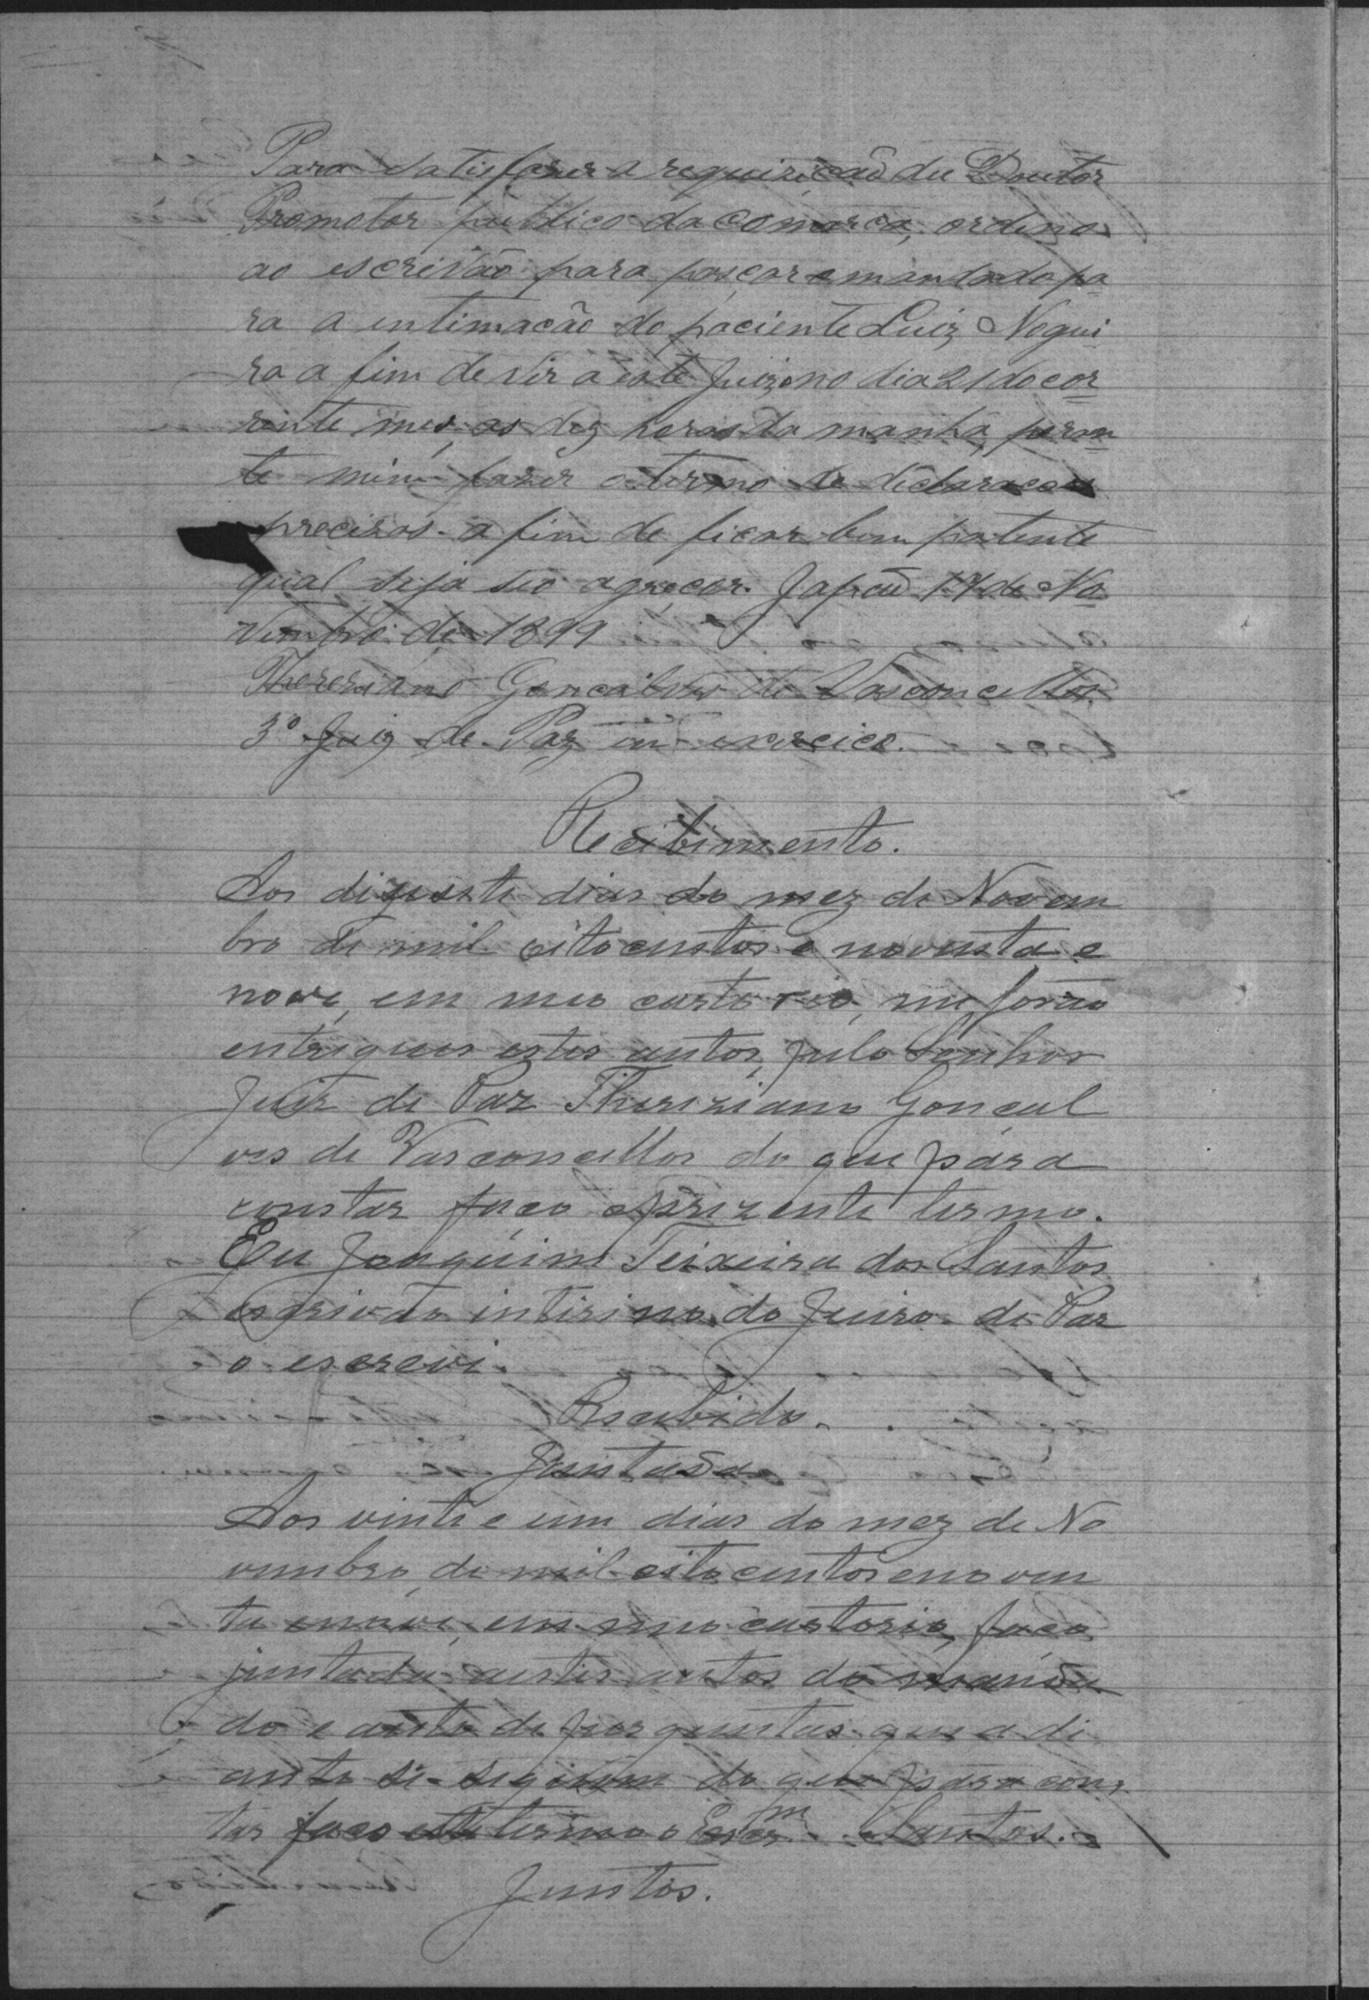 Para satisfazer a requizicaõ du Doutor
Promotor publico da comarca, ordeno
ao escrivão para passar o mandado pa
ra a entimacão do paciente Luiz Noguei
ra a fim de vir a este Juizo no dia 21 do cor
rente mes, as dez horas da manhã, peran
te mim fazer o termo de declaracoes
precizas a fim de ficar bem patente
qual seja seo agreçor. Japaõ 17 de No
vembro de 1899
Therereziano Goncalves de Vasconcellos
3º Juiz de Paz em exercico.
Recibimento.
Aos dizesete dias do mez de Novem
bro de mil oitocentos e noventa e
nove, em meu cartorio, me forão
entregues estes autos, pelo Senhor
Juiz de Paz Thereziano Goncal
ves de Vasconcellos do que para
constar faco o prezente termo.
Eu Joaquim Teixeira dos Santos
escrivão intirino do Juizo de Paz
o escrevi.
Recibido.
Juntada
Aos vinte e um dias do mez de No
vembro de mil oito centos e noven
ta e nove, em meu cartorio, faco
juntada nestes autos do manda
do e auto de perguntas que a di
ante si seguem do que para cons
tar faco este termo o Escrm Santos.
Juntos.